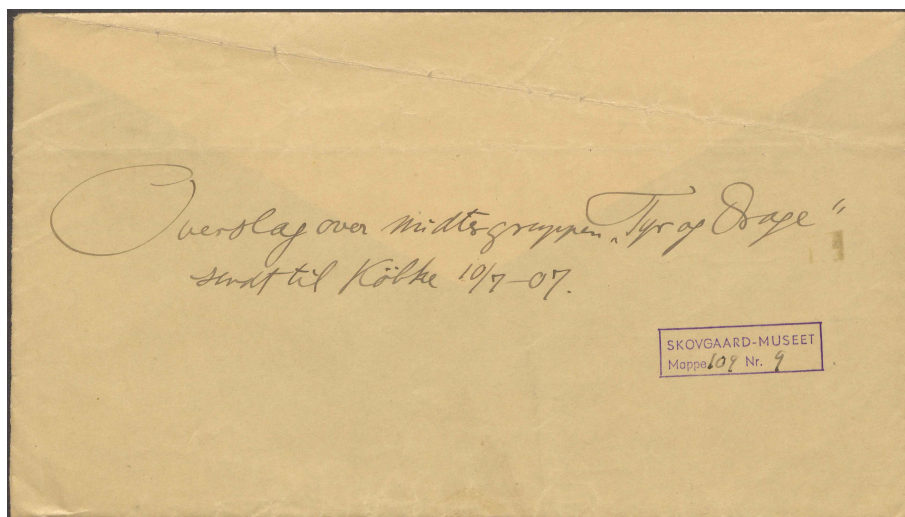 Overslag over midtergruppen „Tyr og Drage“
sendt til Købke 10/7-07.
SKOVGAARD-MUSEET
Mappe 109 Nr. 9